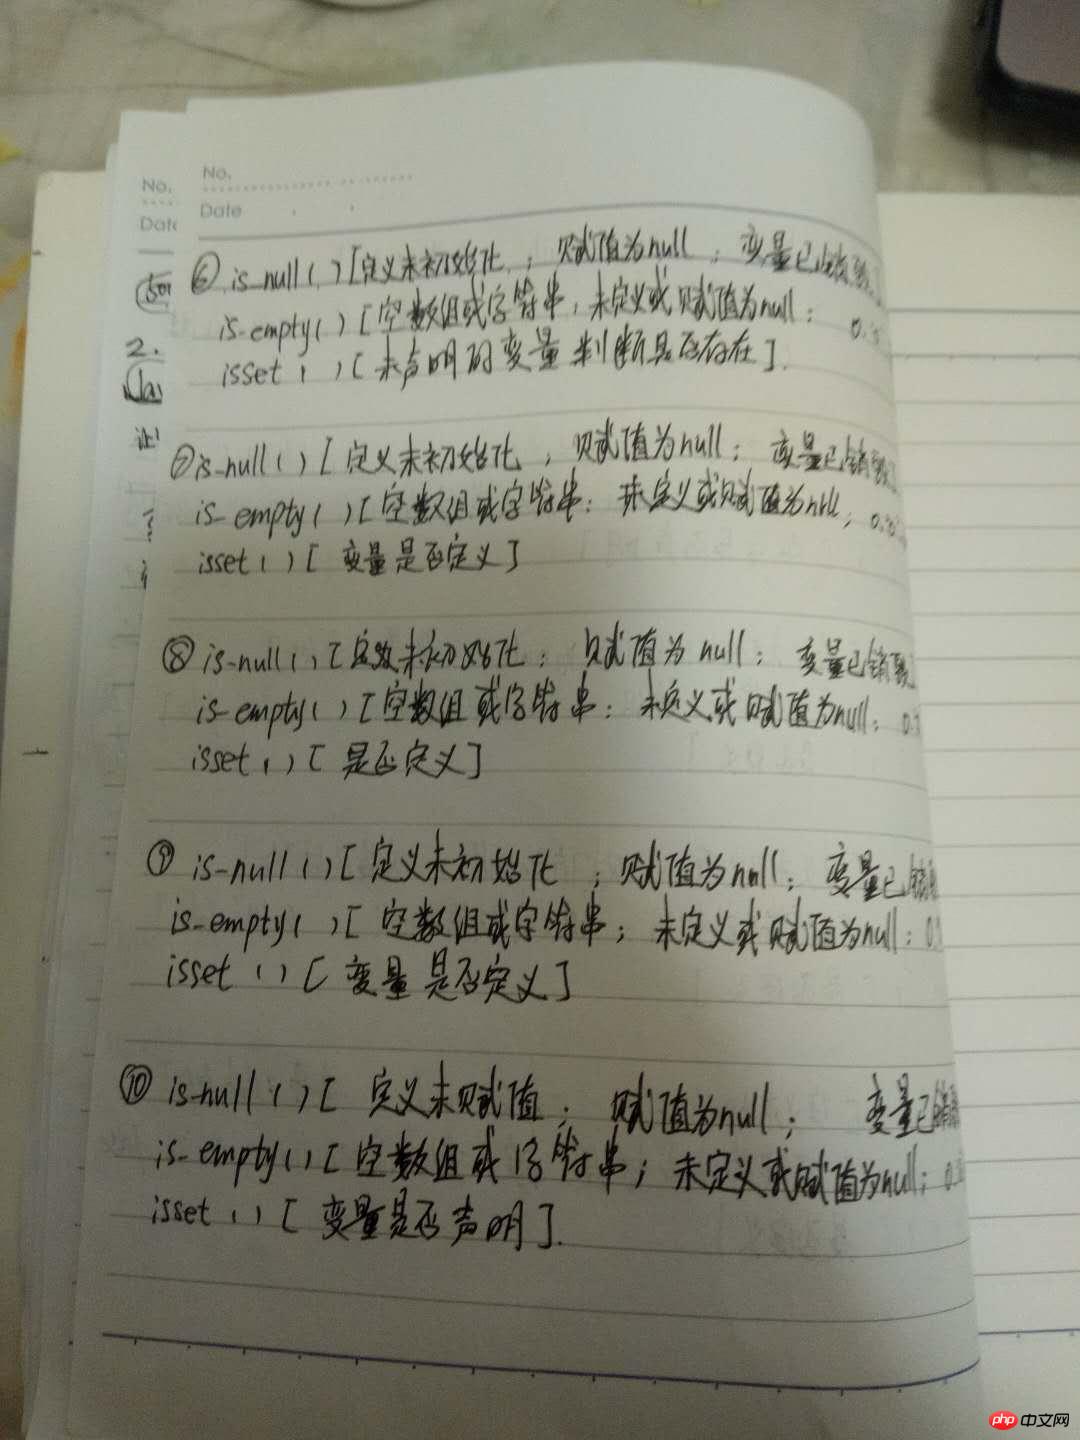 No.
Date
No.
Date
⑥ is_null( )[定义未初始化；赋值为null；变量已销毁
is_empty( )[空数组或字符串；未定义或赋值为null；0.
isset( )[未声明的变量判断是否存在].
2.
⑦ is_null( )[定义未初始化，赋值为null；变量已销毁
is_empty( )[空数组或字符串；未定义或赋值为null；0.
isset( )[变量是否定义]
⑧ is_null( )[定义未初始化；赋值为null；变量已销毁
is_empty( )[空数组或字符串；未定义或赋值为null；0.
isset( )[是否定义]
⑨ is_null( )[定义未初始化；赋值为null；变量已销
is_empty( )[空数组或字符串；未定义或赋值为null；0.
isset( )[变量是否定义]
⑩ is_null( )[定义未赋值；赋值为null；变量已销
is_empty( )[空数组或字符串；未定义或赋值为null；0.
isset( )[变量是否声明].
php中文网